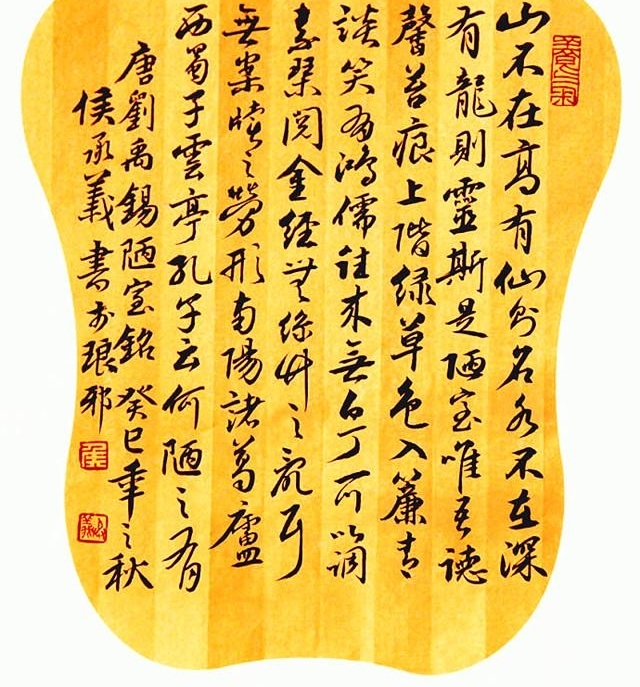 山不在高有仙則名水不在深
有龍則靈斯是陋室唯吾德
馨苔痕上階綠草色入簾青
談笑有鴻儒往來無白丁可以調
素琴閱金經無絲竹之亂耳
無案牘之勞形南陽諸葛廬
西蜀子雲亭孔子云何陋之有
唐劉禹錫陋室銘癸巳年之秋
侯承義書於琅邪